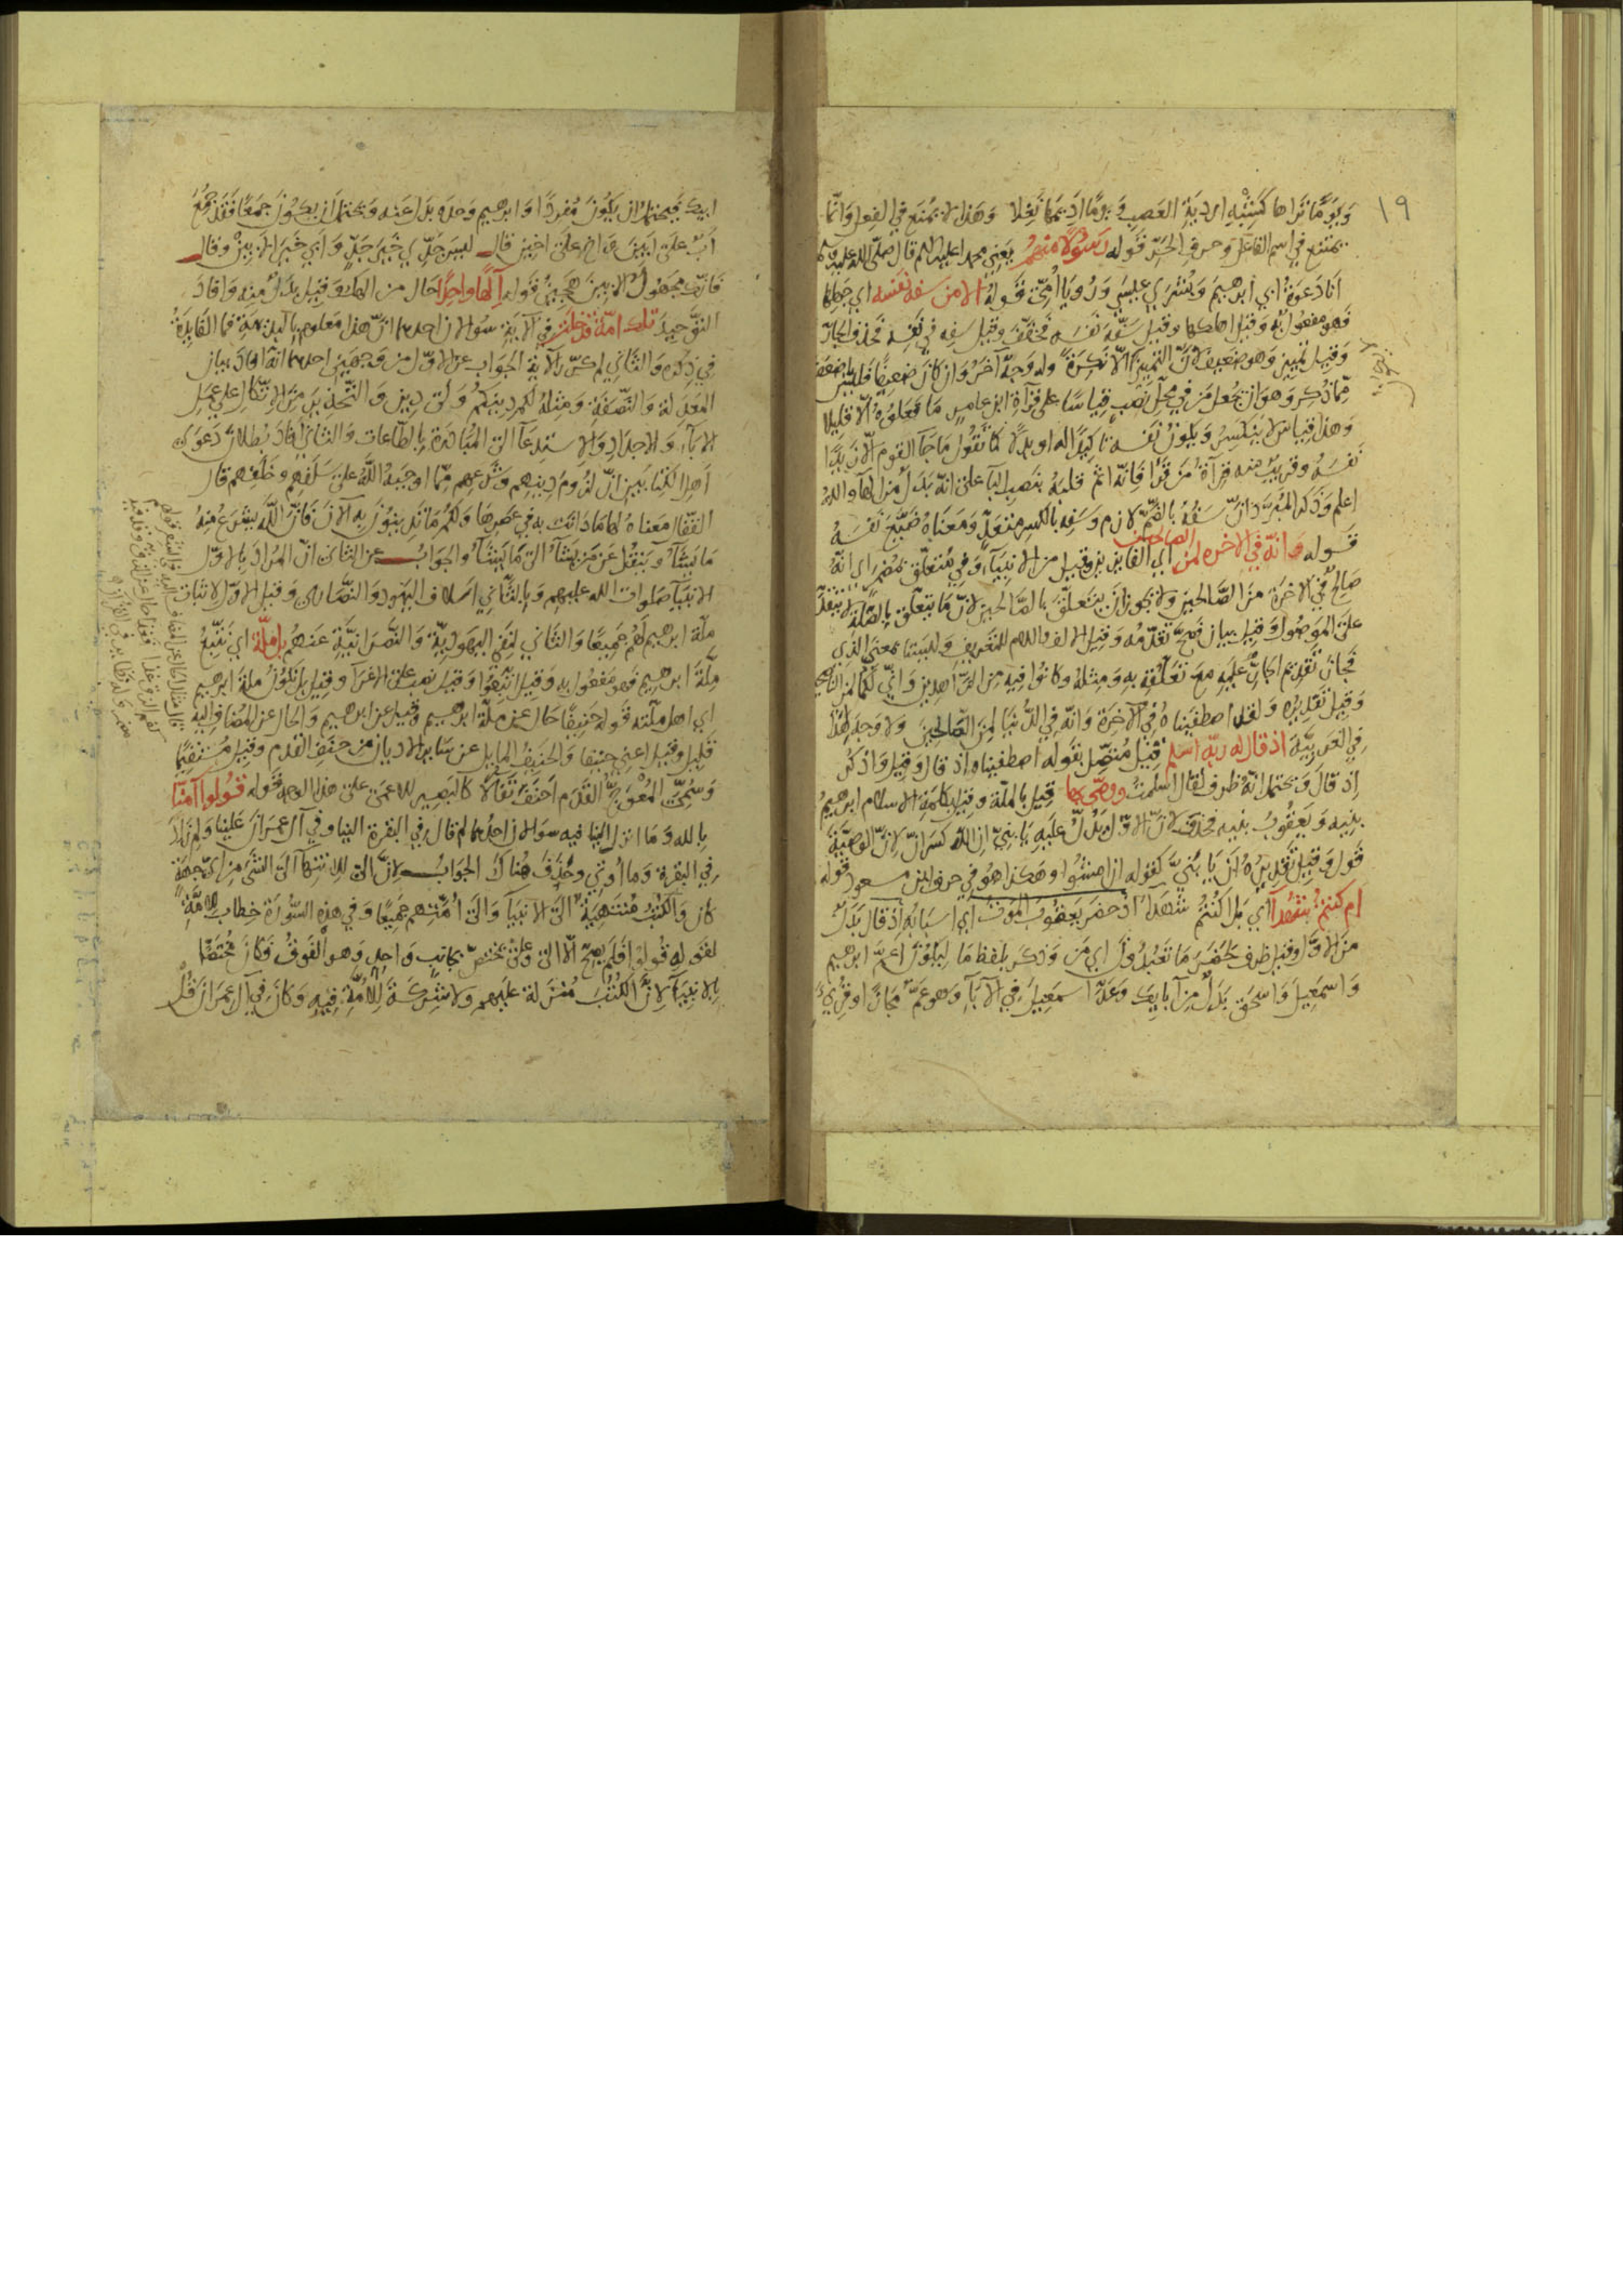 ١٩
ويومًا تراها كشبه اردية العصب ويومًا اديمها نغلا وهذا لا يمتنع في الفعل وانما
يمتنع في اسم الفاعل وحرف الجر قوله رسولا منهم يعني محمدا عليه السلم قال صلى الله عليه وسلم
انا دعوة ابي ابرهيم وبشرى عيسى ورؤيا امي قوله الا من سفه نفسه اي جهلها
فهو مفعول به وقيل اهلكها وقيل سفه نفسه فخفف وقيل سفه في نفسه فحذف الجار
وقيل تمييز وهو ضعيف لان التمييز الا نكرة وله وجه آخر وان كان ضعيفا فليس باضعف
مما ذكر وهو ان تجعل من في محل نصب قياسا على قرآة ابن عامر ما فعلوه الا قليلا
وهذا قياس لا ينكسر ويكون نفسه تاكيدا له او بدلا كما تقول ما جآ القوم الا زيدا
نفسه وقريب منه قرآة من قرا فانه اثم قلبه بنصب البآ على انه بدل من الهآ والله
اعلم وذكر المبرد ان سفه بالضم لازم وسفه بالكسر متعد ومعناه ضيع نفسه
قوله وانه في الاخرة لمن الصالحين اي الفايزين وقيل من الانبيآء وفي متعلق بمضمر اي انه
صالح في الاخرة من الصالحين ولا يجوز ان يتعلق بالصالحين لان ما يتعلق بالصلة لا يتقدم
على الموصول وقيل بيان فصح تقدمه وقيل الالف واللام للتعريف وليستا بمعنى الذي
فجاز تقديم الجار عليه مع تعلقه به ومثله وكانوا فيه من الزاهدين واني لكما لمن الناصحين
وقيل تقديره ولقد اصطفيناه في الآخرة وانه في الدنيا لمن الصالحين ولا وجه لهذا
في العربية اذ قال له ربه اسلم قيل متصل بقوله اصطفيناه اذ قال وقيل واذكر
اذ قال ويحتمل انه ظرف لقال اسلمت ووصى بها قيل بالملة وقيل بكلمة الاسلام ابرهيم
بنيه ويعقوب بنيه فحذف لان الاول يدل عليه يا بني ان الله كسر ان لان الوصية
قول وقيل تقديره ان يا بني كقوله ان امشوا وهكذا هو في حرف ابن مسعود قوله
ام كنتم شهدآ اي بل اكنتم شهدآ اذ حضر يعقوب الموت اي اسبابه اذ قال بدل
من الاول وقيل ظرف لحضر ما تعبدون اي من وذكر بلفظ ما ليكون اعم ابرهيم
واسمعيل واسحق بدل من آبايك وعد اسمعيل في الآبآ وهو عم مجازا وقري
ابيك فيحتمل ان يكون مفردا وابرهيم وحده بدل عنه ويحتمل ان يكون جمعا فقد جمع
اب على ابين واخ على اخين قال
فان مجهول الابين هجين قوله آلها واحدا حال من الهك وقيل بدل منه وافاد
التوحيد تلك امة قد خلت في الآية سؤالان احدهما ان هذا معلوم بالبديهة فما الفايدة
في ذكره والثاني لم كرر الآية الجواب عن الاول من وجهين احدهما انه افاد بيان
المعدلة والنصفة ومثله لكم دينكم ولي دين والتحذير من الاتكال على عمل
الابآء والاجداد والاستدعآ الى المبادرة بالطاعات والثاني افاد بطلان دعوى
اهل الكتابين ان لزوم دينهم وشرعهم مما اوجبه الله على سلفهم وخلفهم قال
القفال معناه لها ما دانت به في عصرها ولكم ما تدينون به الآن فان الله يشرع منه
ما يشآء وينقل عن من يشآء الى ما يشآء والجواب عن الثاني ان المراد بالاول
الانبيآ صلوات الله عليهم وبالثاني اسلاف اليهود والنصارى وقيل الاول لاثبات
ملة ابرهيم لهم جميعا والثاني لنفي اليهودية والنصرانية عنهم بل ملة اي نتبع
ملة ابرهيم فهو مفعول به وقيل اتبعوا وقيل نصب على الاغرآء وقيل بل نكون ملة ابرهيم
اي اهل ملته قوله حنيفا حال عن ملة ابرهيم وقيل عن ابرهيم والحال عن المضاف اليه
قليل وقيل اعني حنيفا والحنيف المايل عن ساير الاديان من حنف القدم وقيل مستقيما
وسمي المعوج القدم احنف تفالا كالبصير للاعمى على هذا الوجه قوله قولوا آمنا
بالله وما انزل الينا فيه سوالان احدهما لم قال في البقرة الينا وفي آل عمران علينا ولم زاد
في البقرة وما اوتي وحذف هناك الجواب لان الى للانتهآ الى الشئ من اي جهة
كان والكتب منتهية الى الانبيآ والى امتهم جميعا وفي هذه السورة خطاب للامة
لقوله قولوا فلم يصح الا الى وعلى مختص بجانب واحد وهو الفوق فكان مختصا
بالانبيآ لان الكتب منزلة عليهم ولا شركة للامة فيه وكان في آل عمران قل